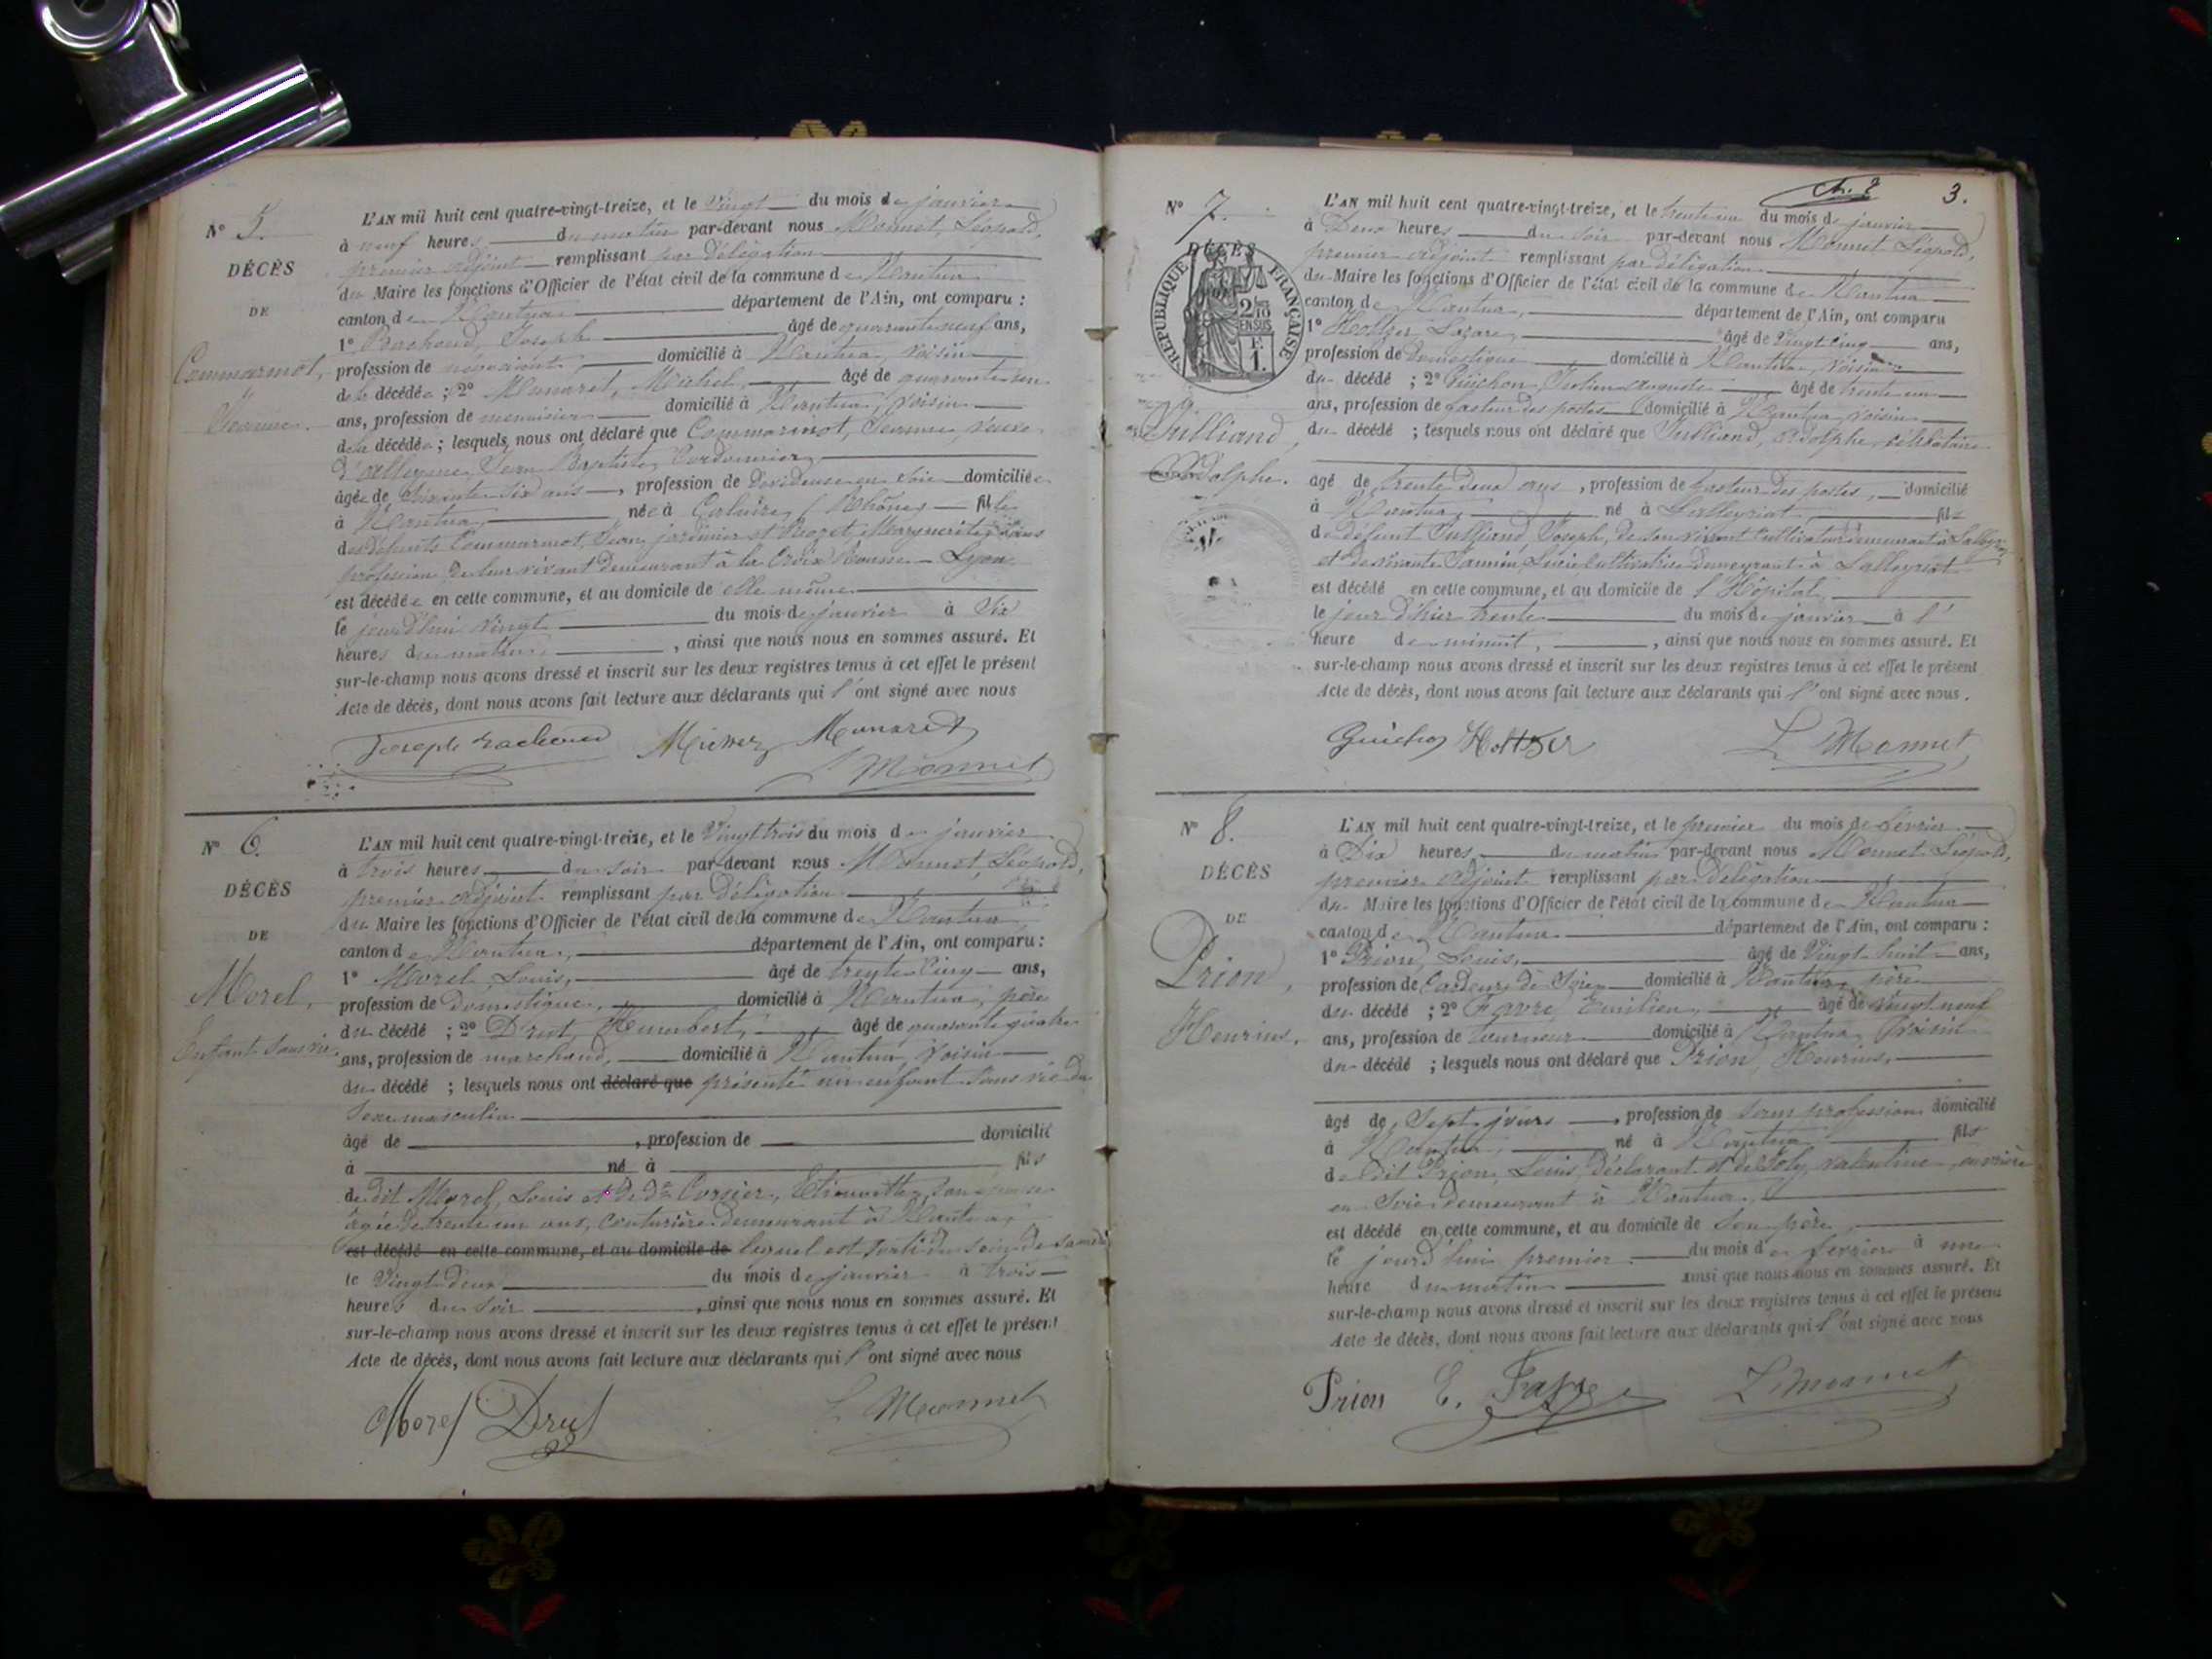 N° 5.
DÉCÈS
DE
Commarmot,
Jeanne.
L'AN mil huit cent quatre-vingt-treize, et le vingt du mois de janvier
à neuf heures du matin par-devant nous Monnet, Léopold,
premier adjoint remplissant par délégation
du Maire les fonctions d'Officier de l'état civil de la commune de Nantua
canton de Nantua département de l'Ain, ont comparu :
1° Bachoud, Joseph âgé de quarante neuf ans,
profession de négociant, domicilié à Nantua, voisin
de la décédée ; 2° Munaret, Michel, âgé de quarante un
ans, profession de menuisier domicilié à Nantua, voisin
de la décédée ; lesquels nous ont déclaré que Commarmot, Jeanne, veuve
Jean Baptiste, Cordonnier,
âgée de soixante six ans, profession de dévideuse en soie domiciliée
à Nantua, née à Caluire (Rhône) fille
des défunts Commarmot, Jean, jardinier et Marguerite, sans
profession de leur vivant demeurant à la Croix Rousse - Lyon
est décédée en cette commune, et au domicile de elle même
le jourd'hui vingt du mois de janvier à six
heures du matin, ainsi que nous nous en sommes assuré. Et
sur-le-champ nous avons dressé et inscrit sur les deux registres tenus à cet effet le présent
Acte de décès, dont nous avons fait lecture aux déclarants qui l'ont signé avec nous
Joseph Bachoud Munaret
L Monnet
N° 6.
DÉCÈS
DE
Morel,
Enfant sans vie.
L'AN mil huit cent quatre-vingt-treize, et le vingt trois du mois de janvier
à trois heures du soir par-devant nous Monnet, Léopold,
premier adjoint remplissant par délégation
du Maire les fonctions d'Officier de l'état civil de la commune de Nantua
canton de Nantua, département de l'Ain, ont comparu :
1° Morel, Louis, âgé de trente cinq ans,
profession de domestique, domicilié à Nantua, père
du décédé ; 2° Drut, Humbert, âgé de quarante quatre
ans, profession de marchand, domicilié à Nantua, voisin
du décédé ; lesquels nous ont déclaré que présenté un enfant sans vie du
sexe masculin
âgé de , profession de domicilié
à né à fils
de dit Morel, Louis et de De Cursier, son épouse
âgée de trente un ans, couturière demeurant à Nantua,
est décédé en cette commune, et au domicile de lequel est sorti du sein de sa mère
le vingt deux du mois de janvier à trois
heures du soir, ainsi que nous nous en sommes assuré. Et
sur-le-champ nous avons dressé et inscrit sur les deux registres tenus à cet effet le présent
Acte de décès, dont nous avons fait lecture aux déclarants qui l'ont signé avec nous
Morel Drut L Monnet
3.
N° 7.
DÉCÈS
RÉPUBLIQUE FRANÇAISE
2/10 EN SUS
F. 1.
Julliand,
Adolphe.
L'AN mil huit cent quatre-vingt-treize, et le trente un du mois de janvier
à deux heures du soir par-devant nous Monnet Léopold,
premier adjoint remplissant par délégation
du Maire les fonctions d'Officier de l'état civil de la commune de Nantua
canton de Nantua, département de l'Ain, ont comparu
1° Holtzer, Lazare, âgé de vingt cinq ans,
profession de domestique domicilié à Nantua, voisin
du décédé ; 2° Guichon, auguste âgé de trente un
ans, profession de facteur des postes domicilié à Nantua voisin
du décédé ; lesquels nous ont déclaré que Julliand, Adolphe, célibataire
âgé de trente deux ans, profession de facteur des postes, domicilié
à Nantua, né à Lalleyriat, fils
de défunt Julliand, Joseph, de son vivant cultivateur demeurant à Lalleyriat
et de vivante Lucie, cultivatrice demeurant à Lalleyriat
est décédé en cette commune, et au domicile de l'Hôpital,
le jour d'hier trente du mois de janvier à l'
heure de minuit, ainsi que nous nous en sommes assuré. Et
sur-le-champ nous avons dressé et inscrit sur les deux registres tenus à cet effet le présent
Acte de décès, dont nous avons fait lecture aux déclarants qui l'ont signé avec nous.
Guichon Holtzer L Monnet
N° 8.
DÉCÈS
DE
Prion,
Henrius.
L'AN mil huit cent quatre-vingt-treize, et le premier du mois de février
à dix heures du matin par-devant nous Monnet Léopold,
premier adjoint remplissant par délégation
du Maire les fonctions d'Officier de l'état civil de la commune de Nantua
canton de Nantua département de l'Ain, ont comparu :
1° Prion, Louis, âgé de vingt huit ans,
profession de cardeur de soie domicilié à Nantua, père
du décédé ; 2° Favre, Emilien, âgé de vingt neuf
ans, profession de tourneur domicilié à Nantua, voisin
du décédé ; lesquels nous ont déclaré que Prion, Henrius,
âgé de sept jours, profession de sans profession domicilié
à Nantua, né à Nantua, fils
de dit Prion, Louis, déclarant et de Joly, Valentine, ouvrière
en soie demeurant à Nantua,
est décédé en cette commune, et au domicile de son père,
le jourd'hui premier du mois de février à une
heure du matin ainsi que nous nous en sommes assuré. Et
sur-le-champ nous avons dressé et inscrit sur les deux registres tenus à cet effet le présent
Acte de décès, dont nous avons fait lecture aux déclarants qui l'ont signé avec nous
Prion E. Favre L Monnet